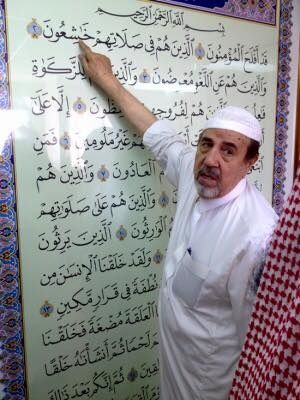 بِسْمِ ٱللَّهِ ٱلرَّحْمَٰنِ ٱلرَّحِيمِ
قَدْ أَفْلَحَ ٱلْمُؤْمِنُونَ ١ ٱلَّذِينَ هُمْ فِي صَلَاتِهِمْ خَٰشِعُونَ ٢
وَٱلَّذِينَ هُمْ عَنِ ٱللَّغْوِ مُعْرِضُونَ ٣ وَٱلَّذِينَ لِلزَّكَوٰةِ
وَٱلَّذِينَ هُمْ لِفُرُوجِهِمْ إِلَّا عَلَىٰٓ
غَيْرُ مَلُومِينَ ٦ فَمَنِ
ٱلْعَادُونَ ٧ وَٱلَّذِينَ هُمْ
وَٱلَّذِينَ هُمْ عَلَىٰ صَلَوَٰتِهِمْ
ٱلْوَٰرِثُونَ ١٠ ٱلَّذِينَ يَرِثُونَ
وَلَقَدْ خَلَقْنَا ٱلْإِنسَٰنَ مِن
نُطْفَةً فِي قَرَارٍ مَّكِينٍ ١٣
ٱلْعَلَقَةَ مُضْغَةً فَخَلَقْنَا
لَحْمًا ثُمَّ أَنشَأْنَٰهُ خَلْقًا
ثُمَّ إِنَّكُم بَعْدَ ذَٰلِكَ